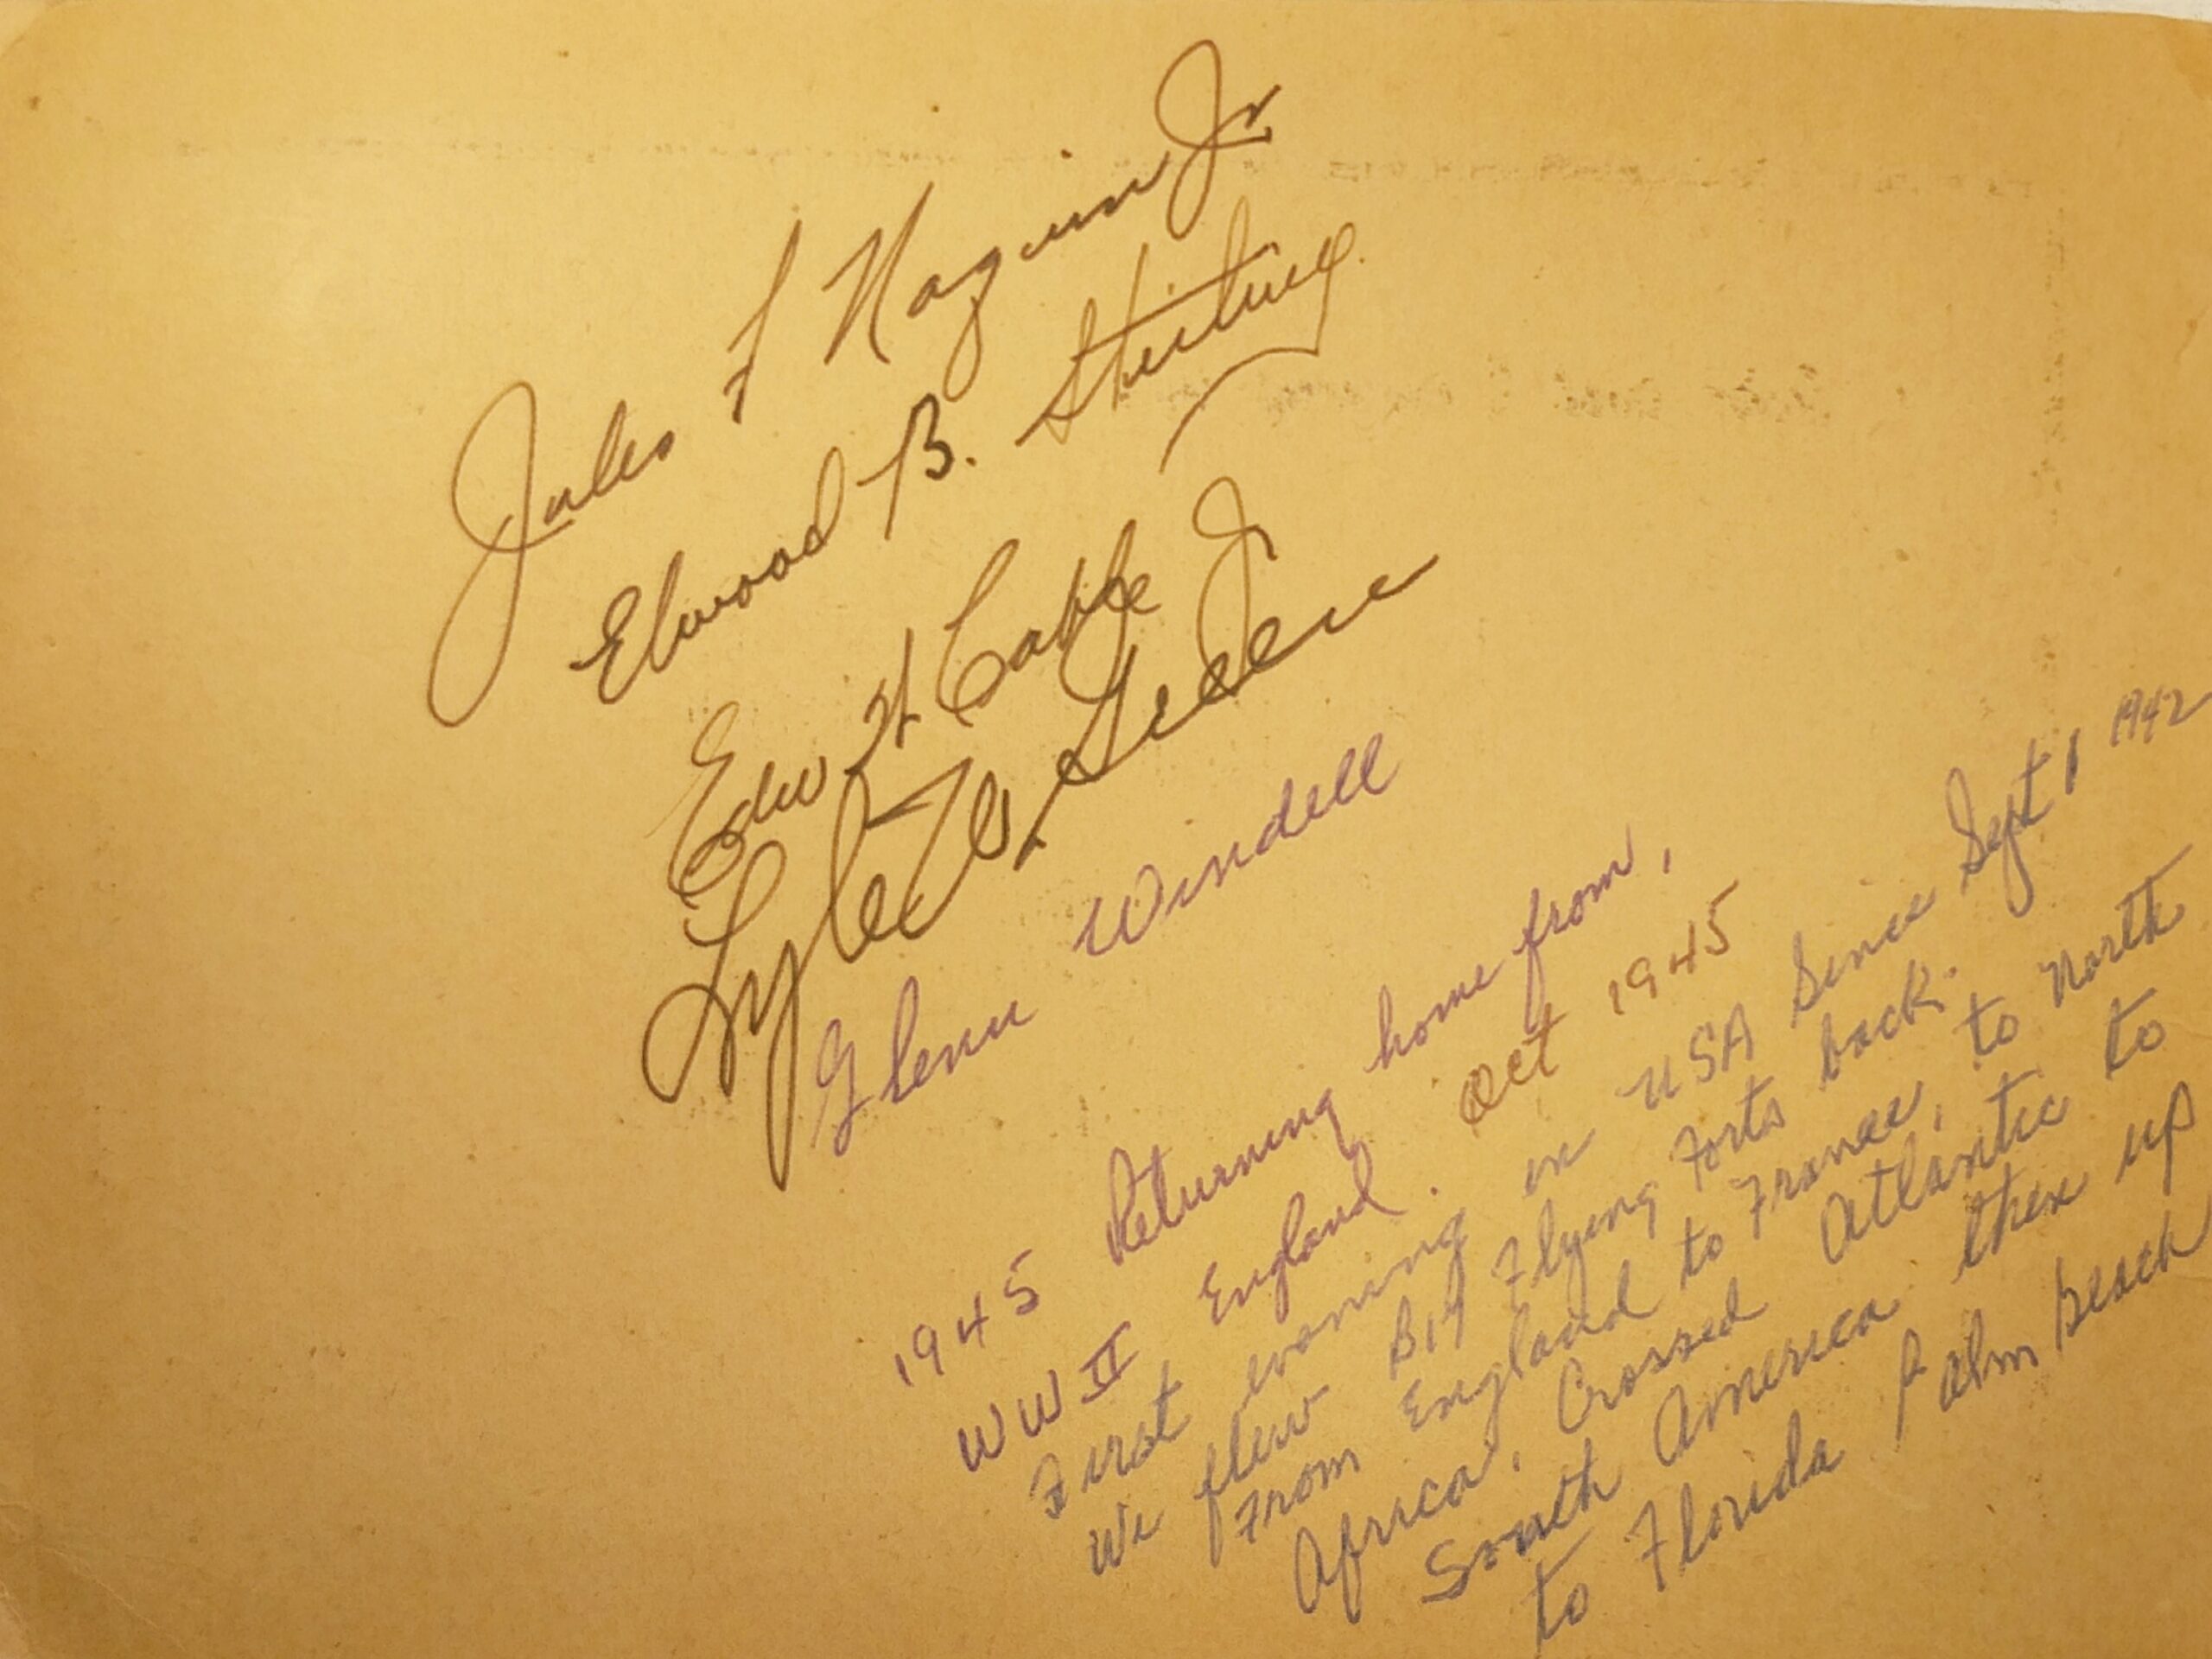 Jules F Naquin Jr
Elwood B. Stirling
Edw H Cable Jr
Lyle
Glenn Windell
1945 Returning home from,
WW II England. Oct 1945
First evaning in USA Since Sept 1 1942
We flew B17 Flying Forts back.
From England to France, to North
Africa, Crossed Atlantic to
South America then up
to Florida Palm Beach